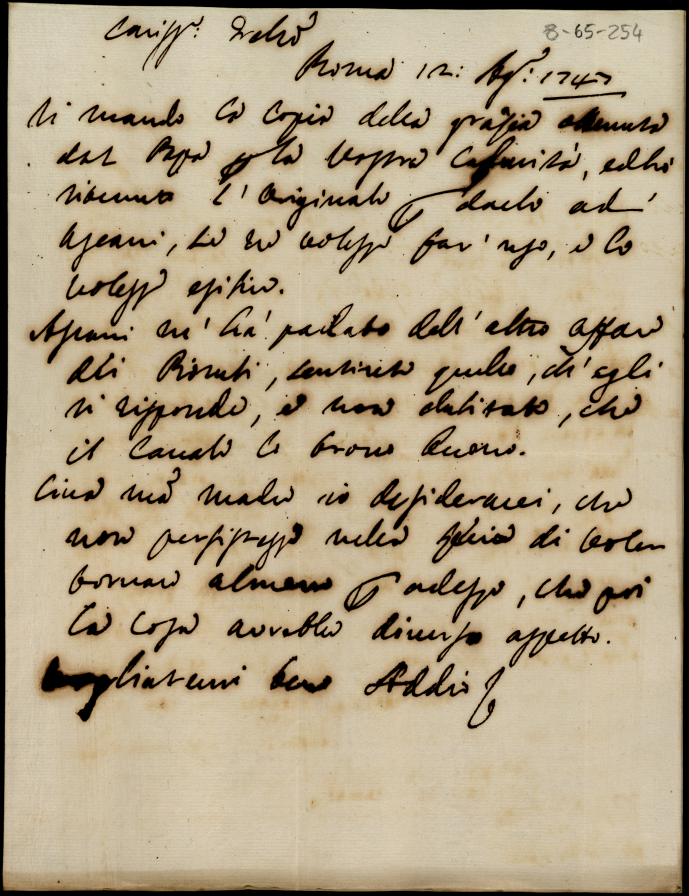 8-65-254
Cariss.º Frello
Roma 12: Ag.º: 1747
Vi mando la copia della grazia ottenuta
dal Papa p la vostra, ed hò
ritenuto l'originale p darlo ad
Ageani, se ne volesse far' uso, e lo
volesse.
Ageani m' hà parlato dell' altro affare
, sentirete quello, ch' egli
vi risponde, e non dubitate, che
il canale lo trovo buono.
Circa mã madre io desiderarei, che
non persistesse nella di voler
tornare almeno p adesso, che poi
la cosa averebbe diverso aspetto.
Vogliatemi bene Addio